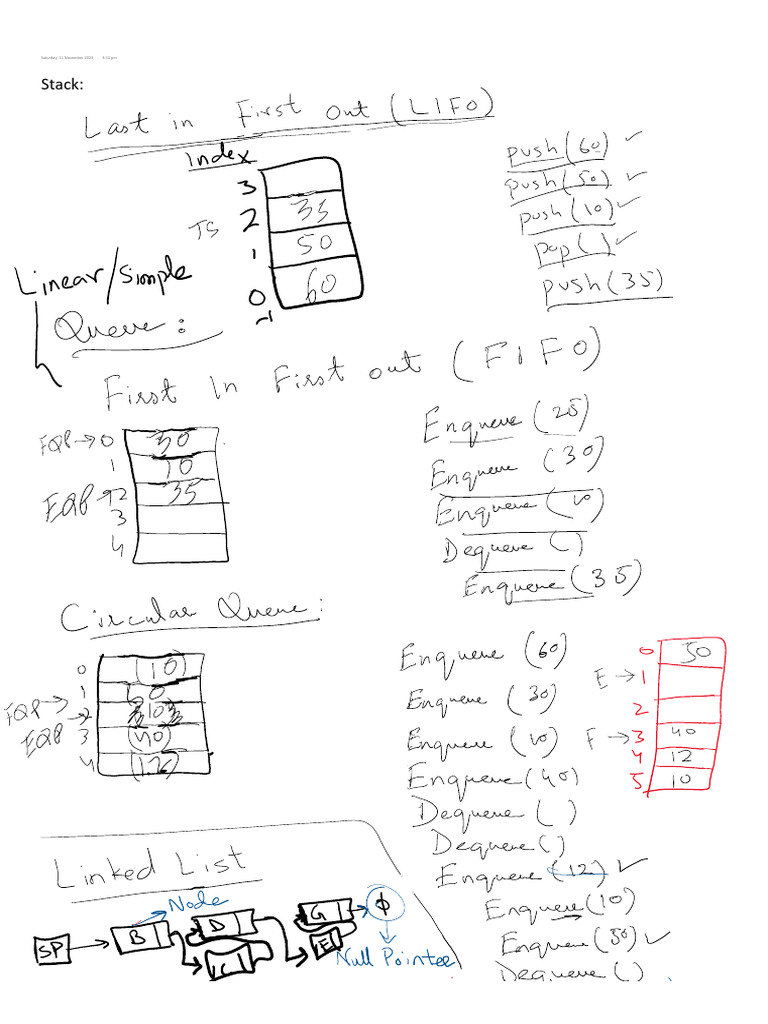 Stack:
Last in First Out (LIFO)
Index
3
TS 2 35
1 50
0 60
-1
push(60) ✓
push(50) ✓
push(10) ✓
pop( ) ✓
push(35)
Linear/Simple
Queue:
First In First out (FIFO)
0 30
1 10
2 35
3
4
Enqueue (25)
Enqueue (30)
Enqueue (10)
Dequeue ( )
Enqueue (35)
Circular Queue:
0 (10)
1
2
3 (40)
4 (12)
Enqueue (60)
Enqueue (30)
Enqueue (10)
Enqueue (40)
Dequeue ( )
Dequeue ( )
Enqueue (12) ✓
Enqueue (10)
Enqueue (50) ✓
Dequeue ( )
0 50
E → 1
2
F → 3 40
4 12
5 10
Linked List
Node
SP B D C G E ϕ
Null Pointer